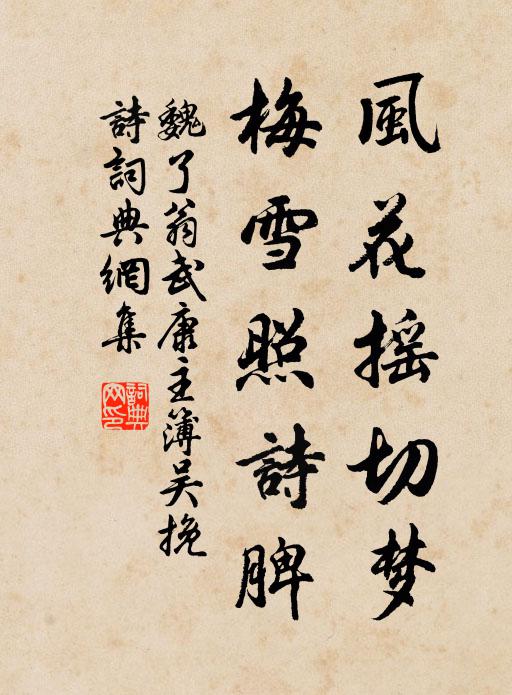 風花摇切梦
梅雪照詩脾
魏了翁武康主簿吴挽
詩詞典網集
詞典網印